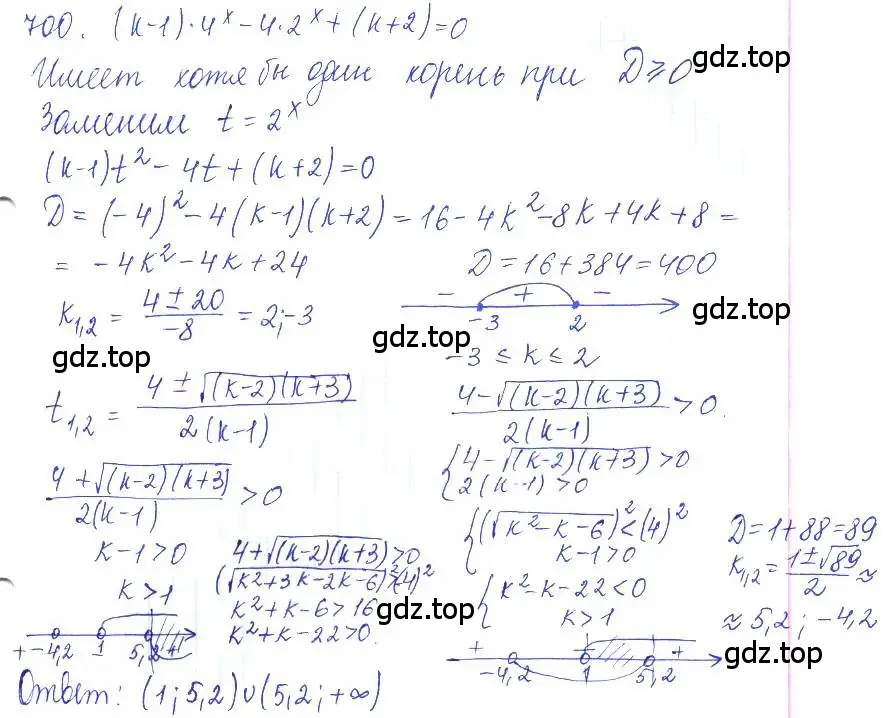 700. (k-1)·4^x - 4·2^x + (k+2) = 0
Имеет хотя бы один корень при D ≥ 0
gdz.top
Заменим t = 2^x
(k-1)t^2 - 4t + (k+2) = 0
D = (-4)^2 - 4(k-1)(k+2) = 16 - 4k^2 - 8k + 4k + 8 =
= -4k^2 - 4k + 24
D = 16 + 384 = 400
k_{1,2} = (4 ± 20)/(-8) = 2; -3
- + -
-3 2
gdz.top
gdz.top
gdz.top
-3 ≤ k ≤ 2
t_{1,2} = (4 ± √((k-2)(k+3)))/(2(k-1))
(4 - √((k-2)(k+3)))/(2(k-1)) > 0.
{4 - √((k-2)(k+3)) > 0
2(k-1) > 0
(4 + √((k-2)(k+3)))/(2(k-1)) > 0
{(√(k^2-k-6))^2 < (4)^2
k-1 > 0
D = 1 + 88 = 89
k_{1,2} = (1 ± √89)/2 ≈
≈ 5,2; -4,2
k-1 > 0
k > 1
4 + √((k-2)(k+3)) > 0
(√(k^2+3k-2k-6))^2 > (4)^2
k^2 + k - 6 > 16
k^2 + k - 22 > 0.
gdz.top
{k^2 - k - 22 < 0
k > 1
+ -4,2 1 5,2 +
+ - +
-4,2 1 5,2
gdz.top
Ответ: (1; 5,2) ∪ (5,2; +∞)
gdz.top